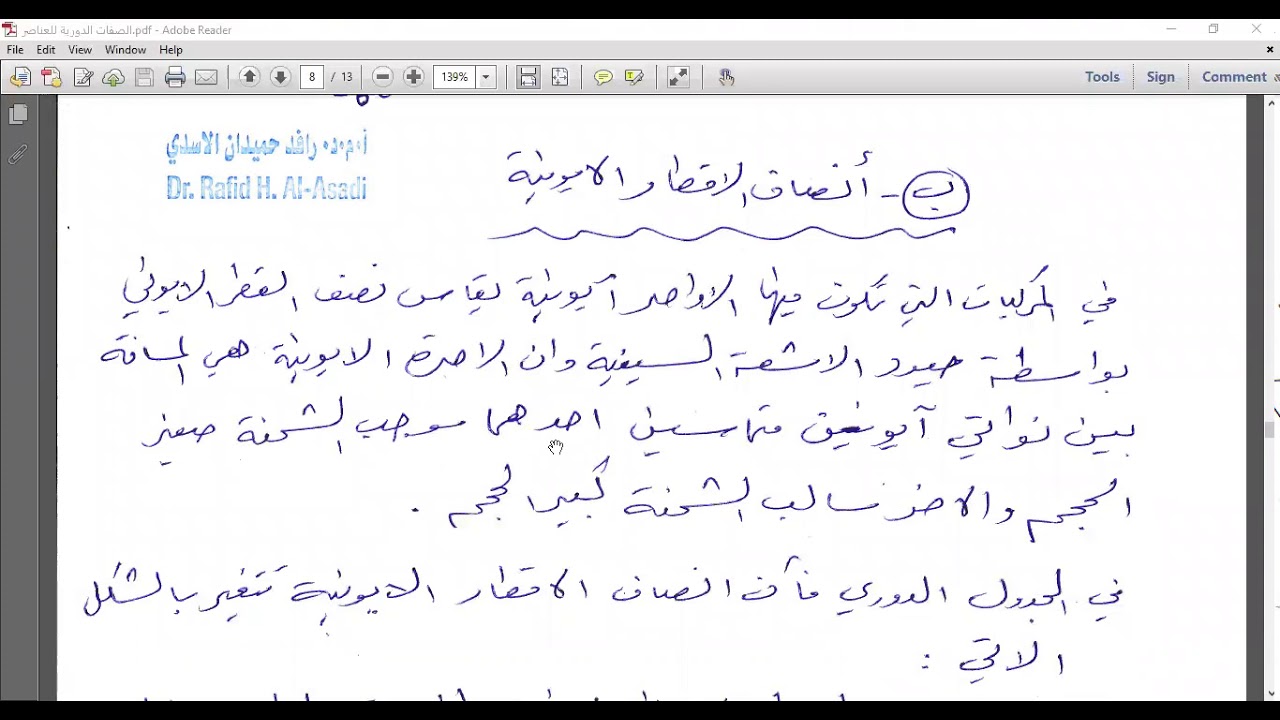 الصفات الدورية للعناصر.pdf - Adobe Reader
File Edit View Window Help
8 / 13 139% Tools Sign Comment
أ.م.د. رافد حميدان الاسدي
Dr. Rafid H. Al-Asadi
ب - أنصاف الاقطار الايونية
في المركبات التي تكون فيها الاواصر آيونية يقاس نصف القطر الايوني
بواسطة حيود الاشعة السينية وان الاصرة الايونية هي المسافة
بين نواتي آيونين متماسين احدهما موجب الشحنة صغير
الحجم والاخر سالب الشحنة كبير الحجم .
في الجدول الدوري فأن انصاف الاقطار الايونية تتغير بالشكل
الاتي :